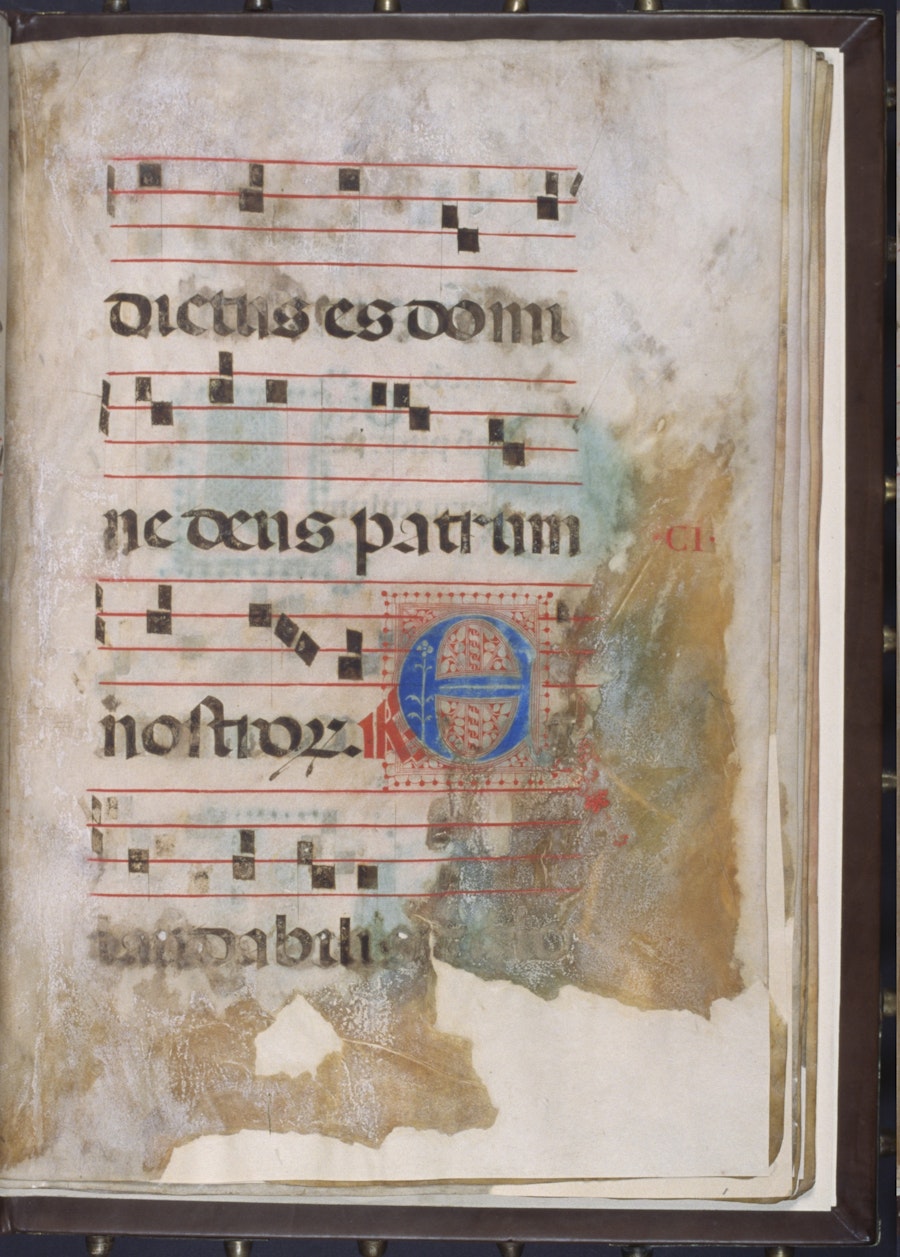 dictus es domi
ne deus patrum
CI
nostroꝝ. ℟ E
laudabilis